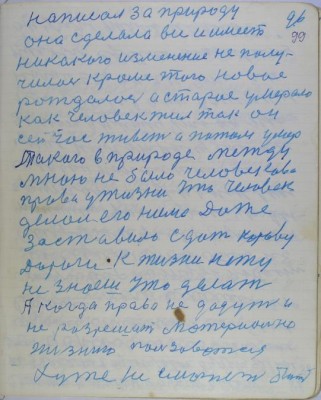 написал за природу
96
она сделала ви и имеет
99
никакого изменение не полу-
чилос кроме того новое
рождалос а старое умерало
как человек жил так он
сей час живет а потом умер
Такого в природе между
мною не было человекова
права у жизни Што человек
делал его нимо Даже
заставило сдат корову
Дороги К жизни нету
не знаеш што делат
А когда право не дадут и
не розрешат Материально
жизнию ползоватся
Хуже не сможет быт